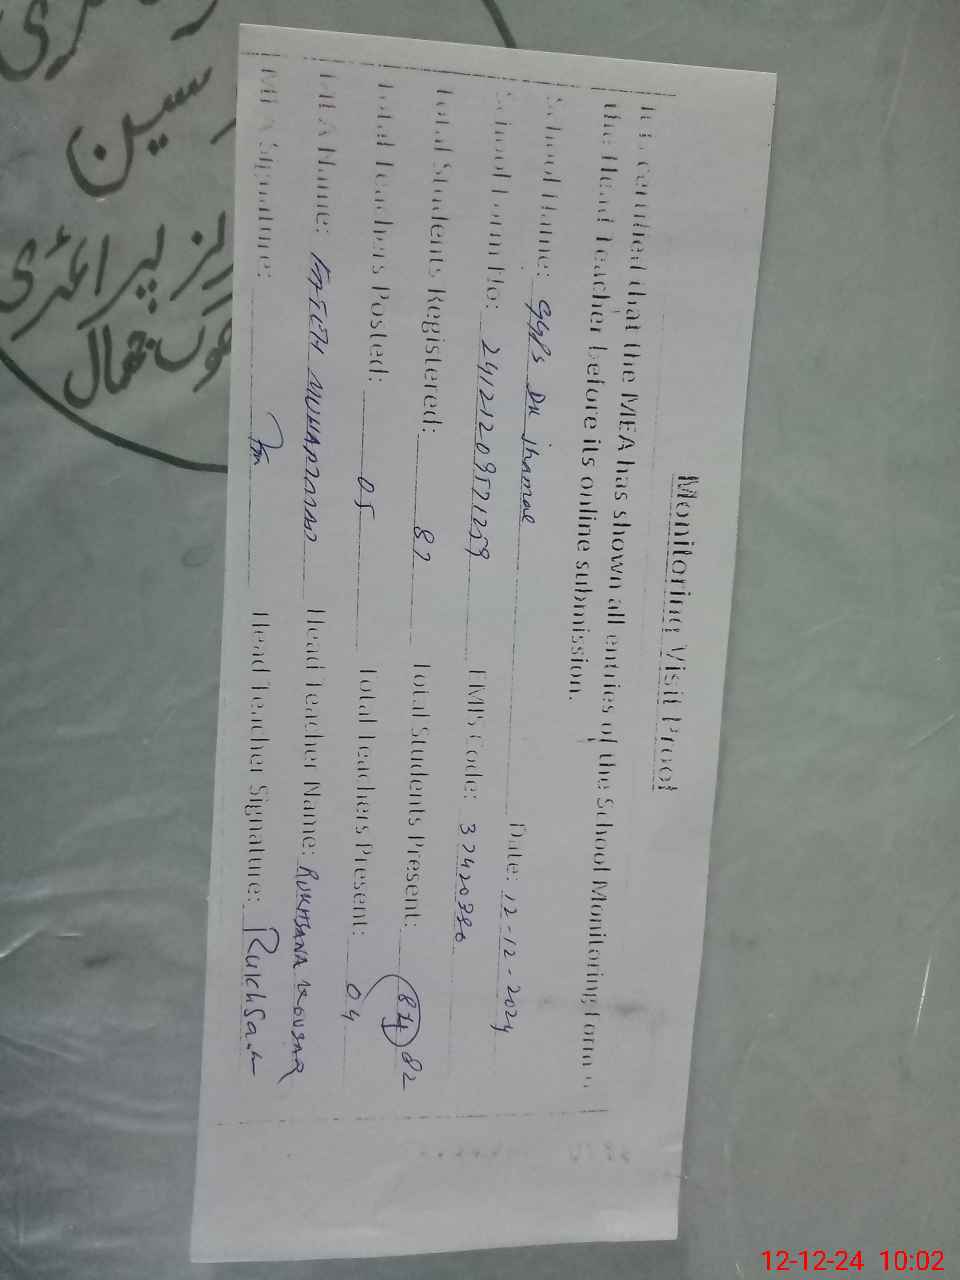 Monitoring Visit Proof
It is certified that the MEA has shown all entries of the School Monitoring Form
the Head Teacher before its online submission.
School Name: GGPS DK jhamal Date: 12-12-2024
School Form No: 24121209571259 EMIS Code: 37420380
Total Students Registered: 87 Total Students Present: 84 82
Total Teachers Posted: 05 Total Teachers Present: 04
MEA Name: MUHAMMAD Head Teacher Name: RUKHSANA KOUSAR
MEA Signature: Head Teacher Signature: Rukhsana
سین
پرائمری
جھمال
12-12-24 10:02